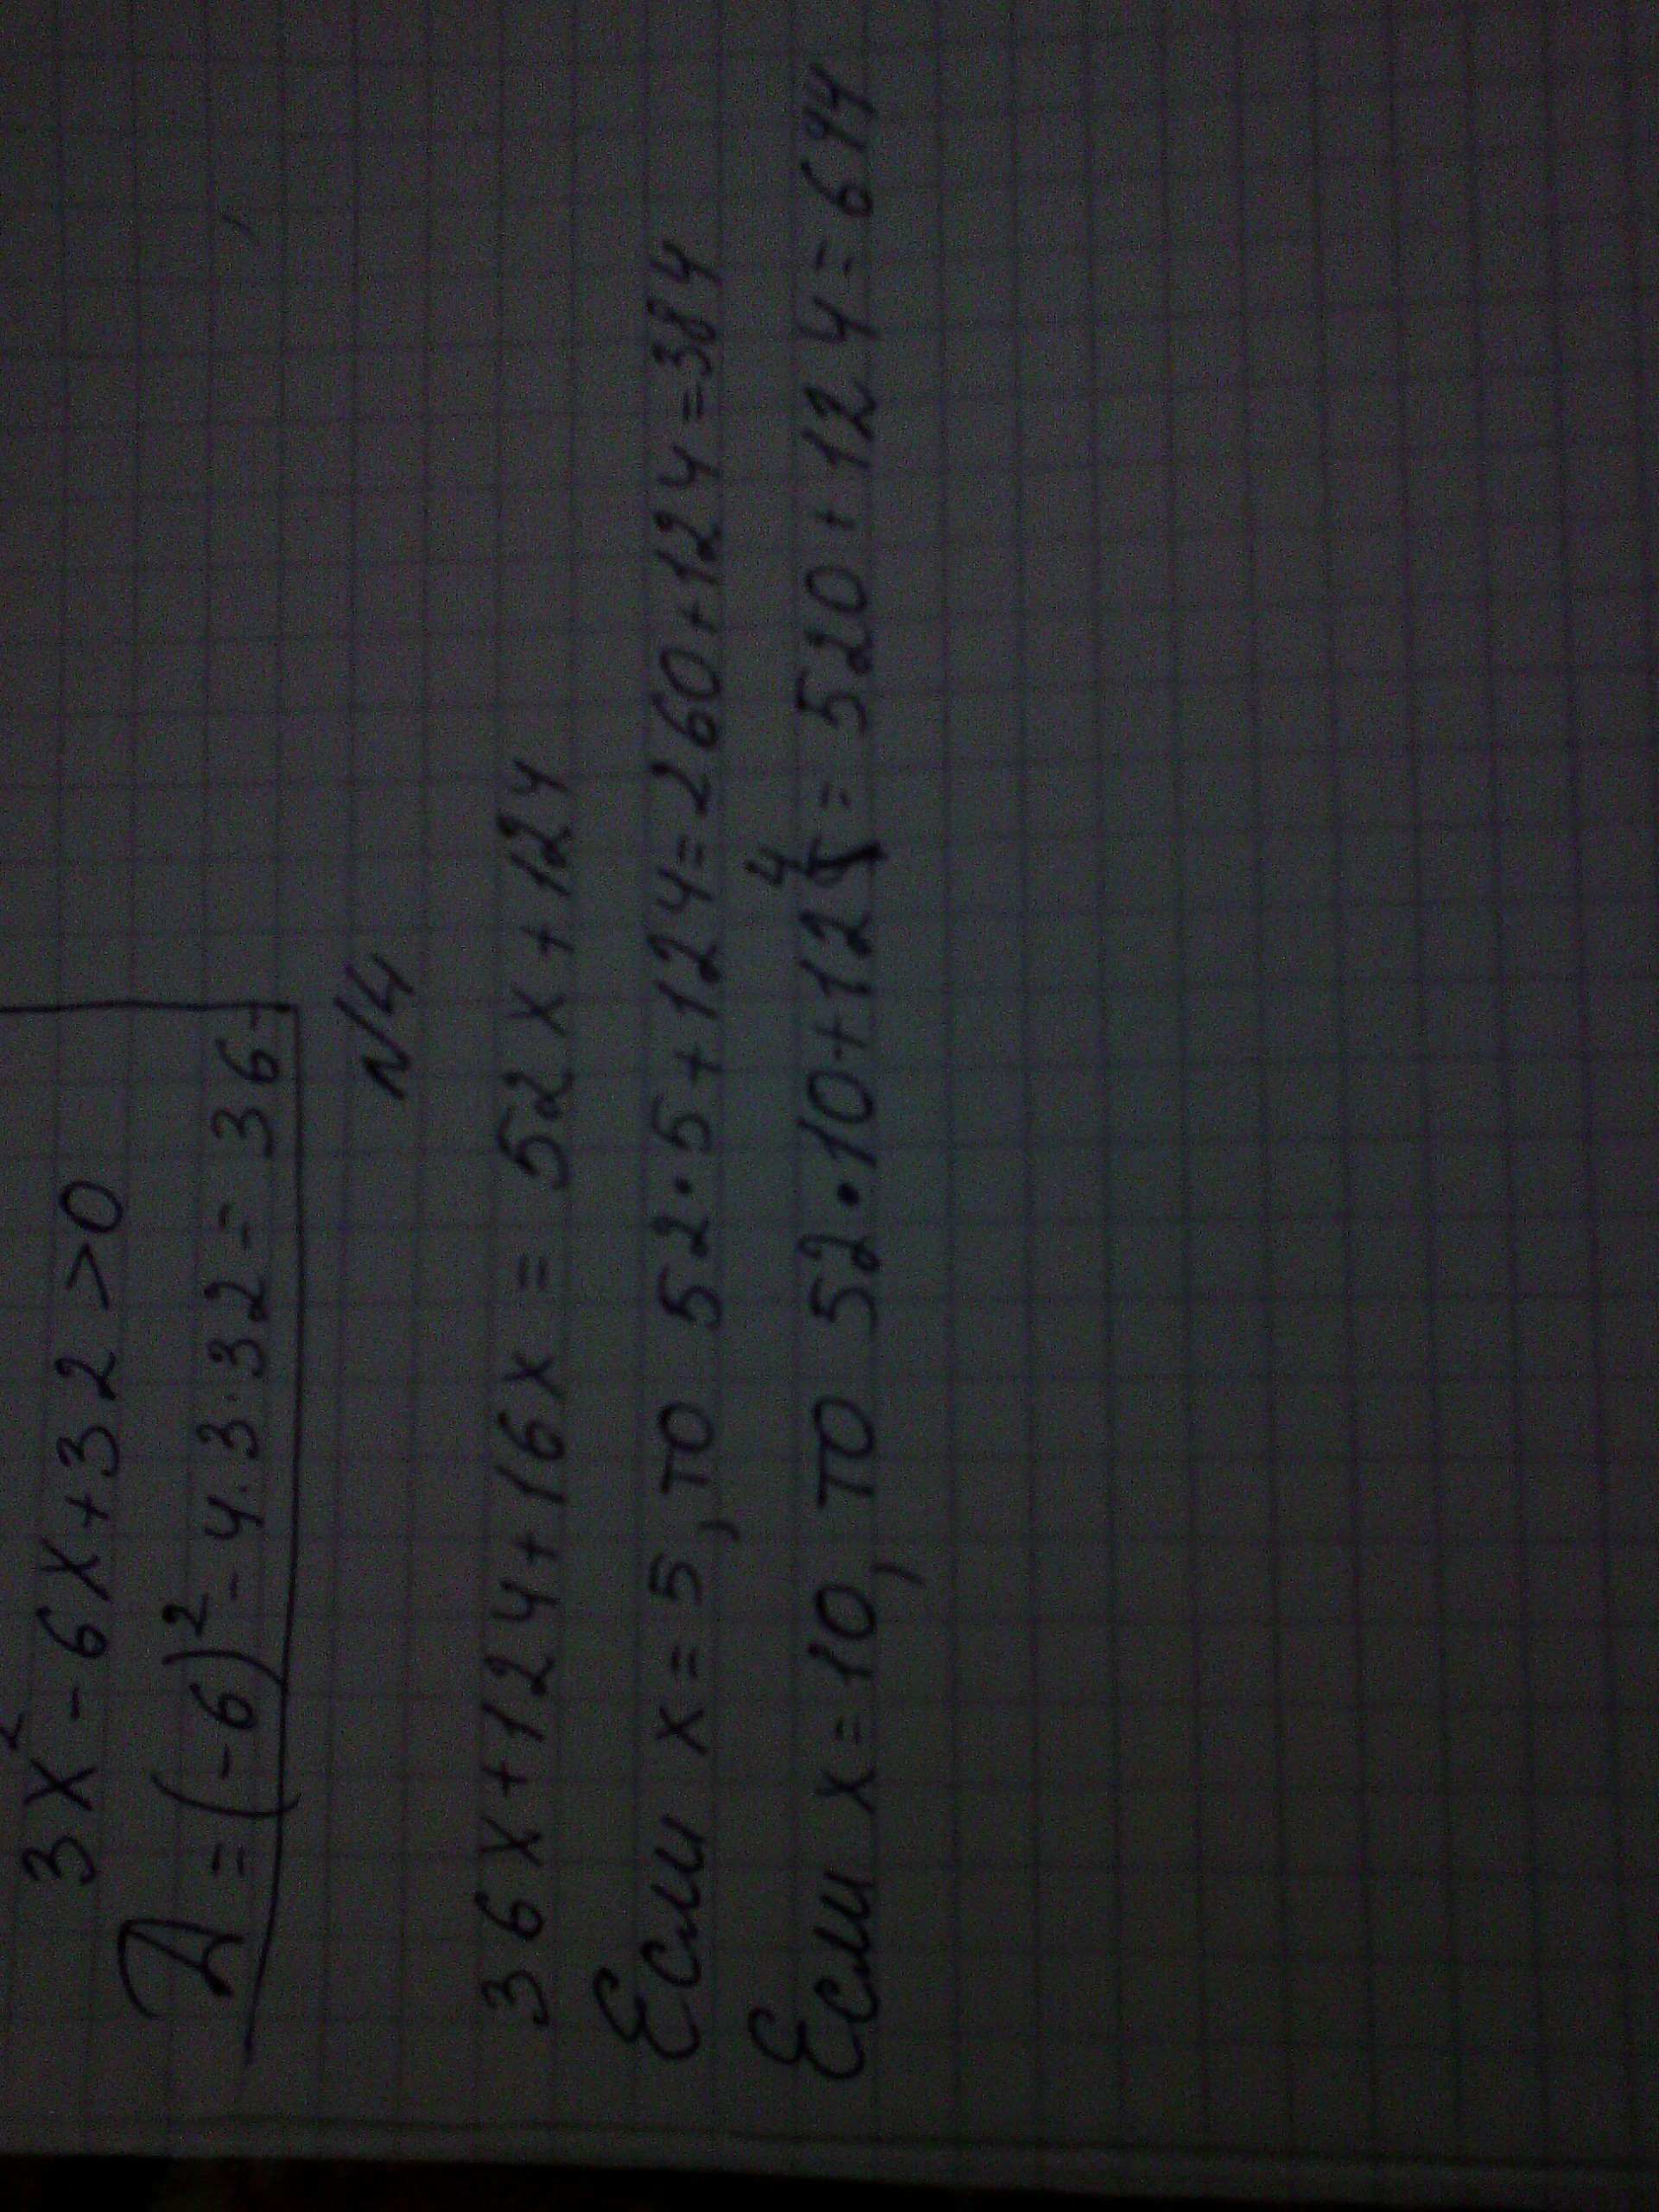 3x² - 6x + 32 > 0
Д = (-6)² - 4·3·32 = 36 -
N4
36x + 124 + 16x = 52x + 124
Если x = 5, то 52·5 + 124 = 260 + 124 = 384
Если x = 10, то 52·10 + 124 = 520 + 124 = 644